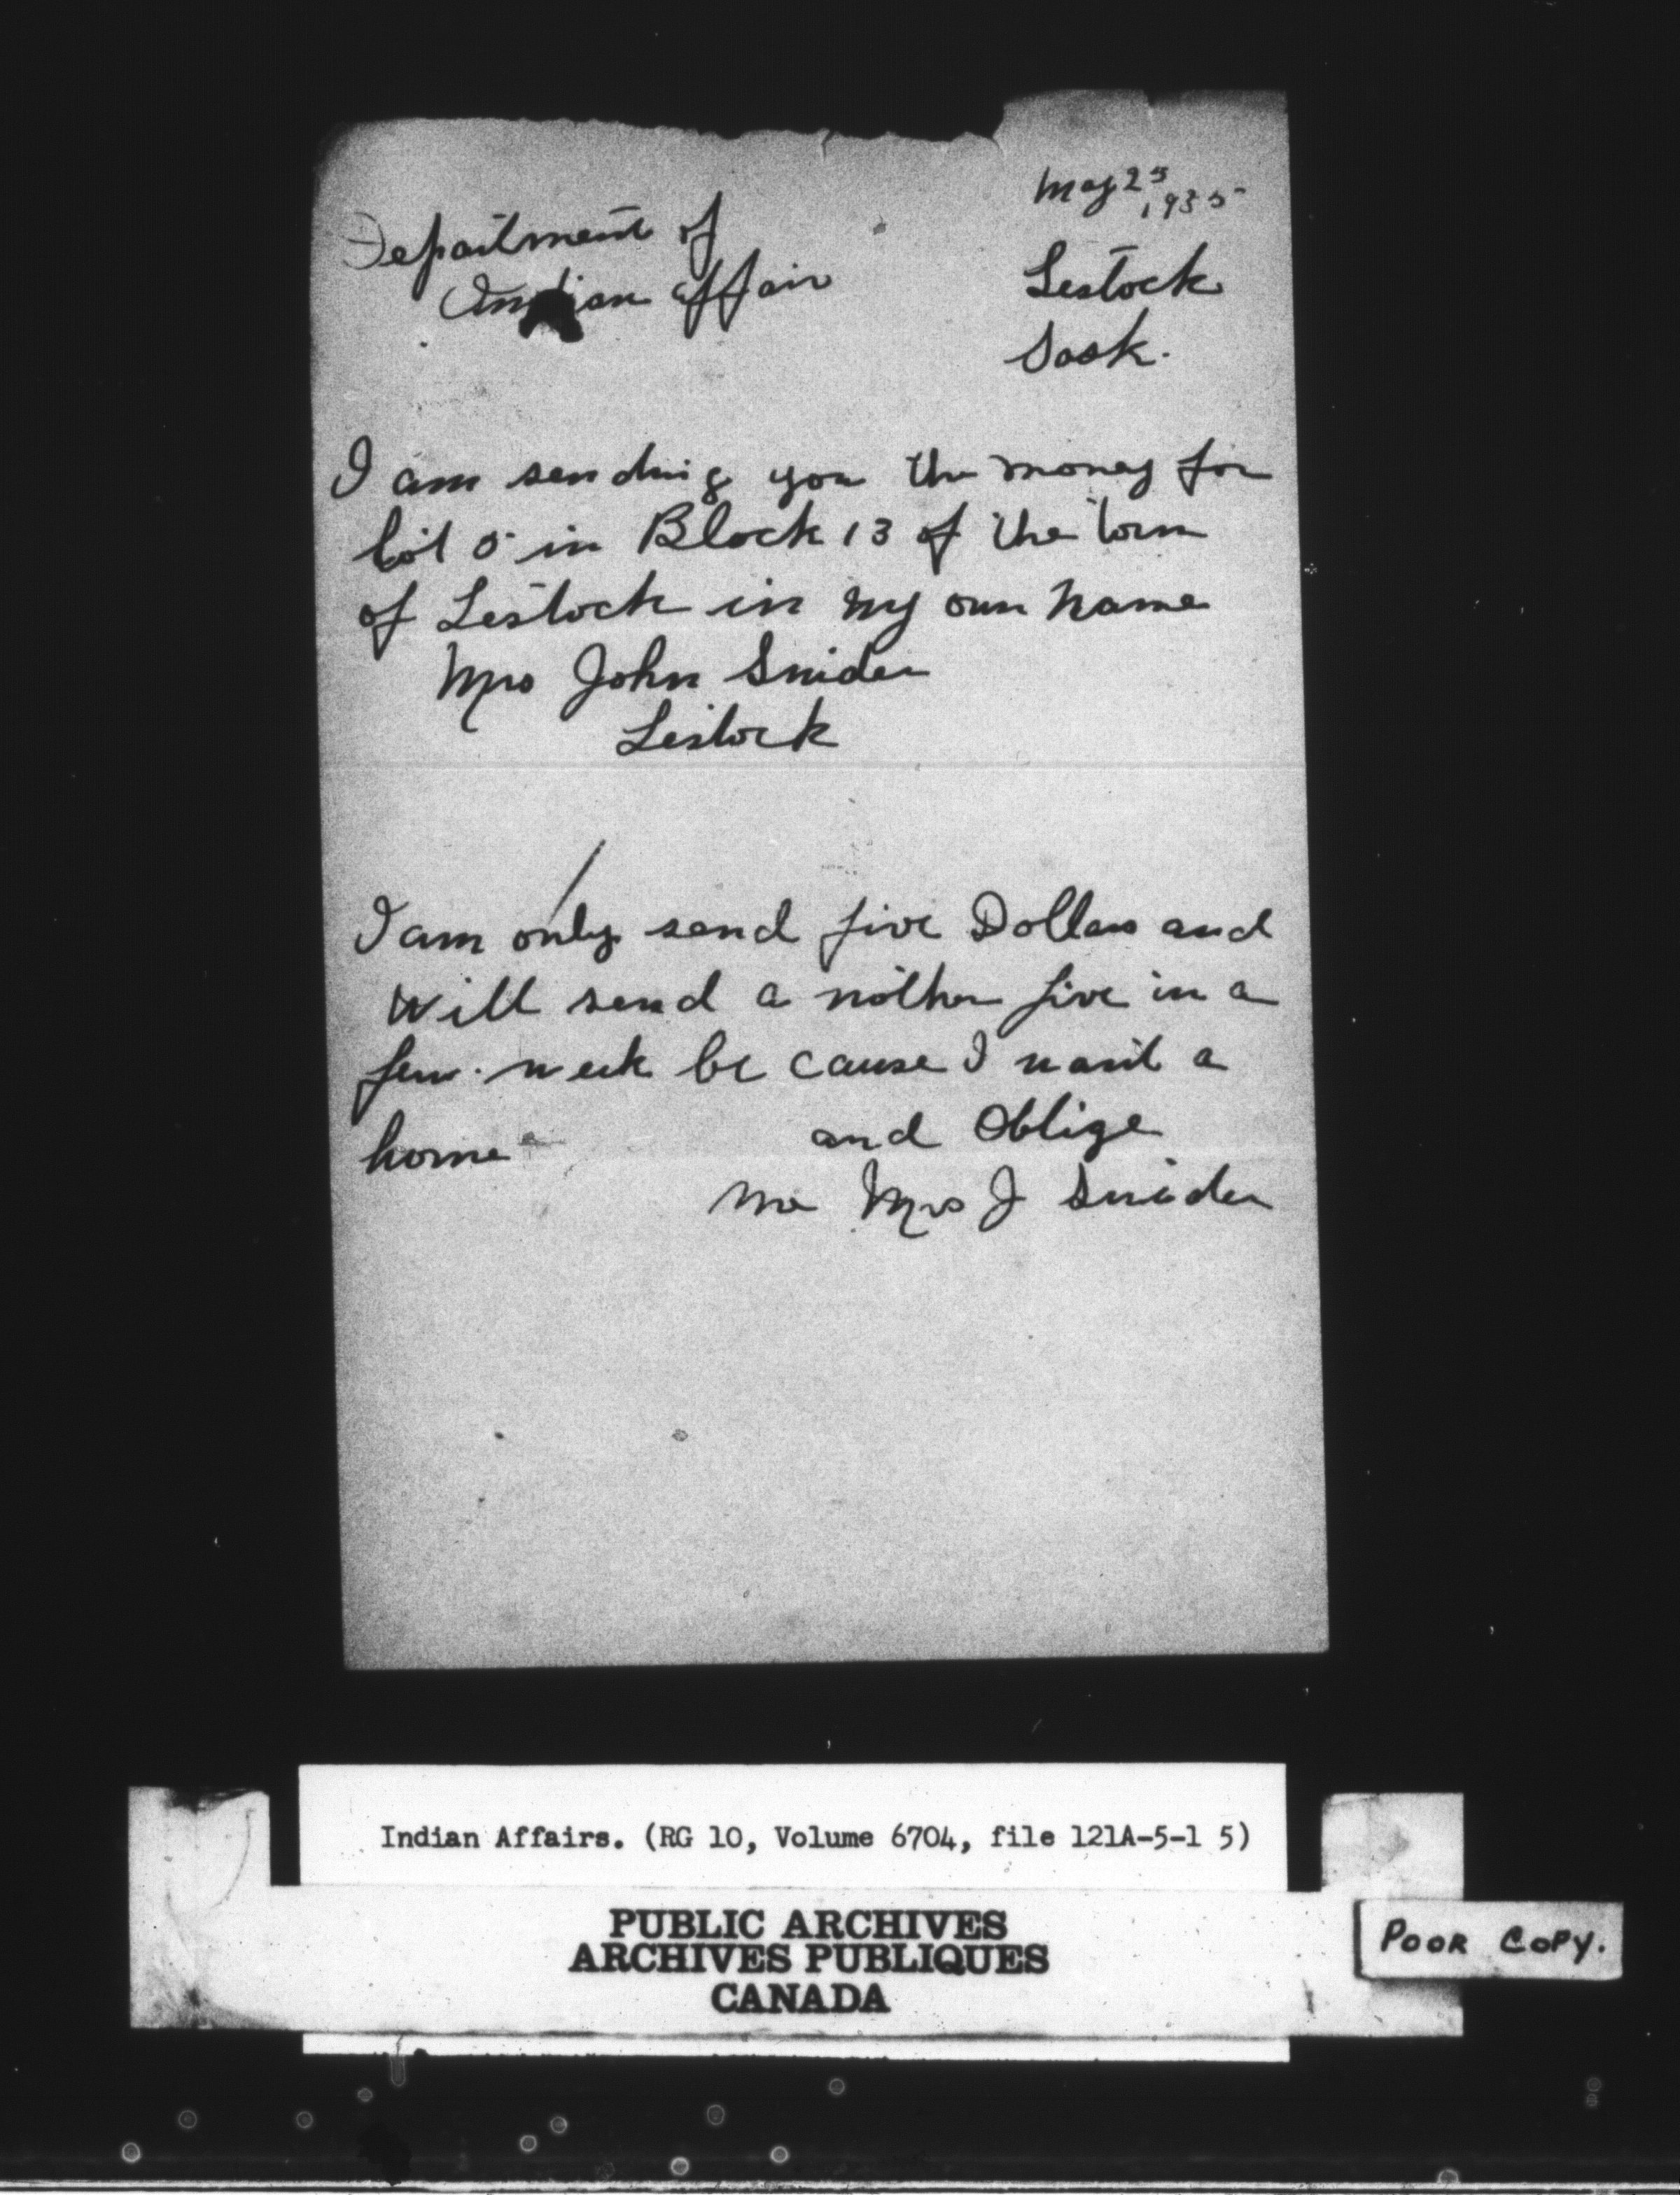 May 25
1935
Department of
Indian affair
Lestock
Sask.
I am sending you the money for
lot 5 in Block 13 of the town
of Lestock in my own name
Mrs John Snider
Lestock
I am only send five Dollars and
will send a nother five in a
few week be cause I want a
home and Oblige
me Mrs J Snider
Indian Affairs. (RG 10, Volume 6704, file 121A-5-1 5)
PUBLIC ARCHIVES
ARCHIVES PUBLIQUES
CANADA
POOR COPY.